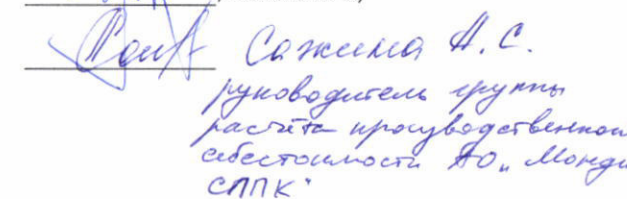 Сажина А.С.
руководитель группы
расчёта производственной
себестоимости АО „Монди
СЛПК"